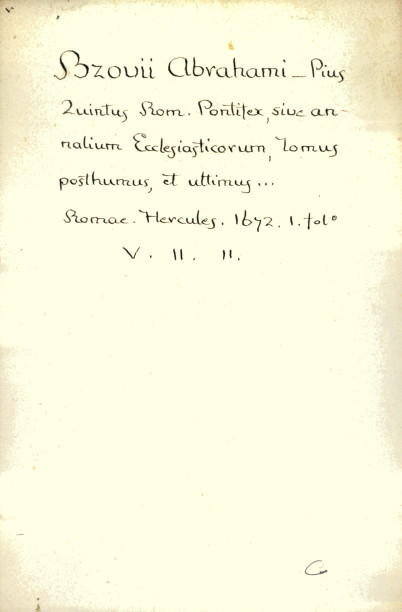 Bzovii Abrahami _ Pius
Quintus Rom. Pontifex, sive an-
nalium Ecclesiasticorum, Tomus
posthumus, et ultimus ...
Romae. Hercules. 1672. 1. folº
V. II. II.